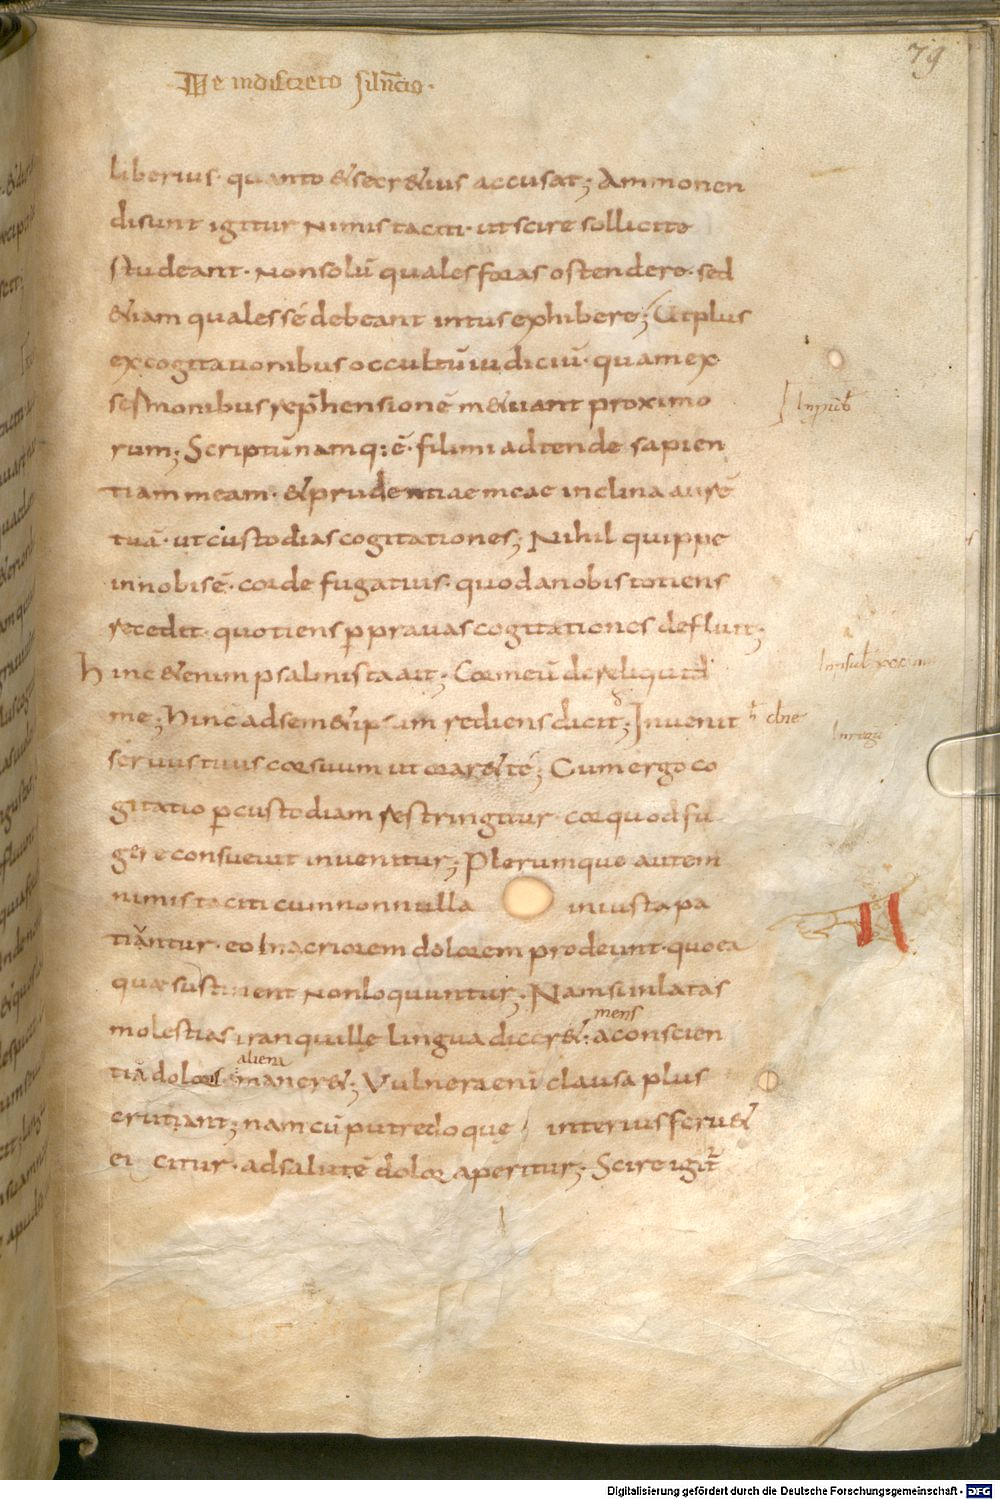 79
De indiscreto silēcio.
liberius· quanto & secr&ius accusat; Ammonen
di sunt igitur nimis taciti· ut scire sollicite
studeant· non solū quales foras ostendere· sed
&iam quales sé debeant intus exhibere; Ut plus
ex cogitationibus occultū iudiciū· quam ex
sermonibus rep̄hensionē m&uant proximo
rum; Scriptū namq:ē· fili mi adtende sapien
tiam meam· & prudentiae meae inclina aurē
tuā· ut custodias cogitationes; Nihil quippe
in nobis ē· corde fugatius· quod a nobis totiens
recedit· quotiens p pravas cogitationes defluit;
hinc &enim psalmista ait; Cor meū dereliquid
me; Hinc ad sem&ipsum rediens dicit; Invenit
servus tuus cor suum ut orar& te; Cum ergo co
gitatio p custodiam restringitur· cor quod fu
gere consuevit invenitur; Plerumque autem
nimis taciti cum nonnulla iniusta pa
tiantur· eo in acriorem dolorem prodeunt· quo ea
quae sustinent non loquuntur; Nam si inlatas
mens
molestias tranquille lingua dicer&· a conscien
aliena
tiā doloris· maner&; Vulnera enī clausa plus
cruciant; nam cū putredo que interius ferv&
eicitur· ad salutē dolor aperitur; Scire igit̄
dn̄e